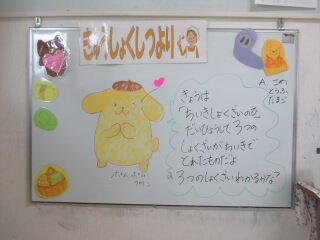 きゅうしょくしつより
A こめ
とうふ
たまご
きょうは
「ちいきしょくざいの日」
だいひょうして3つの
しょくざいがちいきで
とれたものだよ
Q 3つのしょくざいわかるかな?
ポムポム
プリン